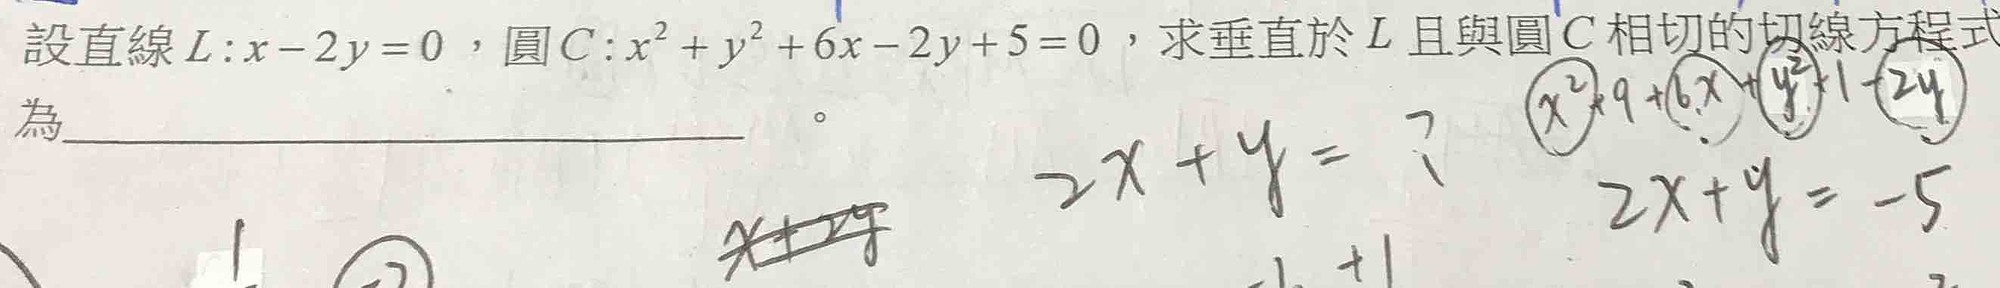 設直線 L : x − 2y = 0 ，圓 C : x² + y² + 6x − 2y + 5 = 0 ，求垂直於 L 且與圓 C 相切的切線方程式
為 。
x² + 9 + 6x + y² + 1 - 2y
2x + y = ?
2x + y = -5
x + 2y
+1